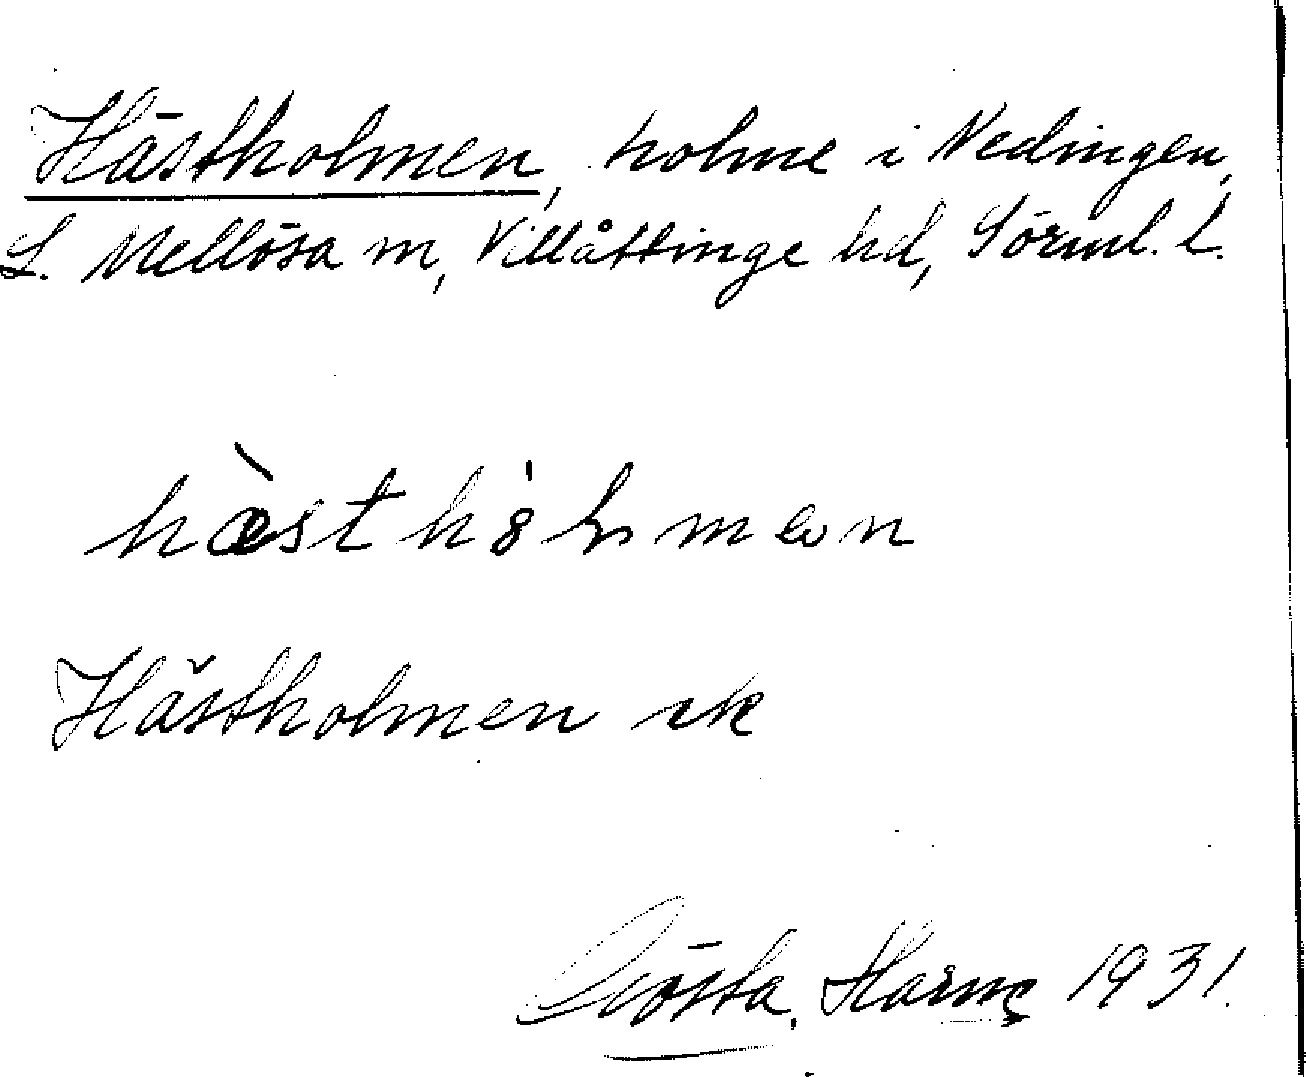 Hästholmen, holme i Nedingen,
L. Mellösa sn, Villåttinge hd, Sörml. l.
Hästholmen ek
Gösta Harnes 1931.